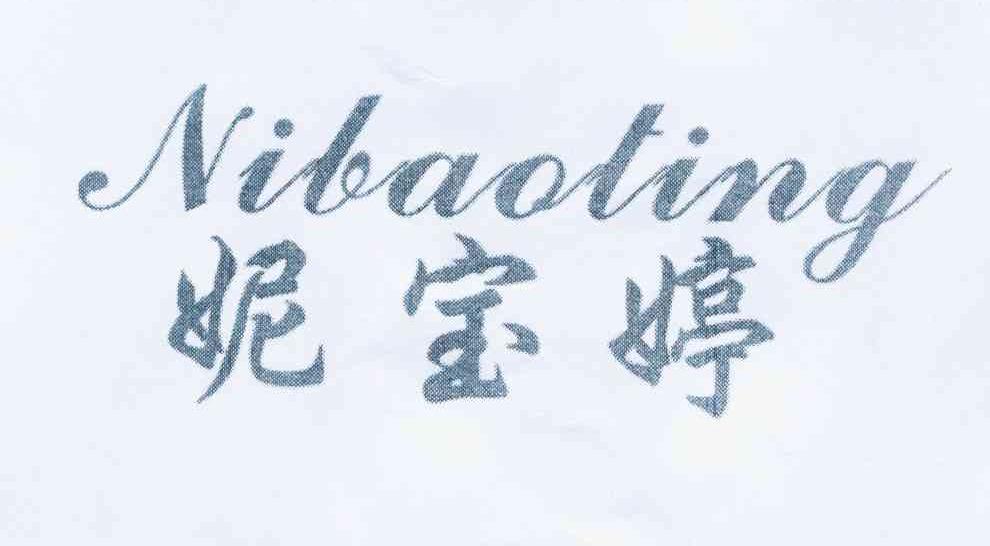 Nibaoting
妮宝婷